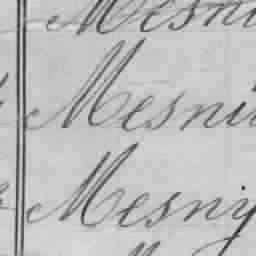 Mesni
Mesni
Mesny